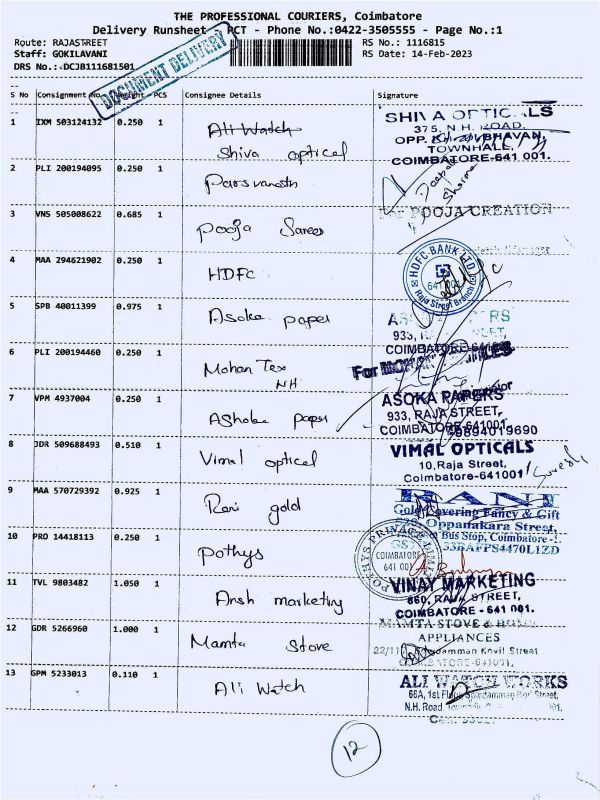 THE PROFESSIONAL COURIERS, Coimbatore
Delivery Runsheet - PCT - Phone No.:0422-3505555 - Page No.:1
Route: RAJASTREET
RS No.: 1116815
Staff: GOKILAVANI
RS Date: 14-Feb-2023
DRS No.:-DCJB111681501
DOCUMENT DELIVERY
S No Consignment No. Weight PCS Consignee Details Signature
1 IXM 503124132 0.250 1 Ali Watch
Shiva optical
SHIVA OPTICALS
375, N.H. ROAD,
OPP. BHAVAN,
TOWNHALL,
COIMBATORE-641 001.
2 PLI 200194095 0.250 1
Deepak
Sharma
3 VNS 505008622 0.685 1 Pooja Sarees
POOJA CREATION
4 MAA 294621902 0.250 1 HDFC
HDFC BANK LTD
641 001
Raja Street Branch
5 SPB 40011399 0.975 1 Asoka paper
933,
COIMBATORE
6 PLI 200194460 0.250 1 Mohan Tex
NH
For
7 VPM 4937004 0.250 1 Ashoka paper
ASOKA PAPERS
933, RAJA STREET,
COIMBATORE-641001.
9894019690
8 JDR 509688493 0.510 1 Vimal optical
VIMAL OPTICALS
10,Raja Street,
Coimbatore-641001
Suresh
9 MAA 570729392 0.925 1 Rani gold
RANI
Gold Covering Fancy & Gift
Oppanakara Street,
Bus Stop, Coimbatore -1.
33BAFPS4470L1ZD
10 PRO 14418113 0.250 1 Pothys
POTHYS PRIVATE
COIMBATORE
641 001
11 TVL 9803482 1.050 1 Ansh marketing
VINAY MARKETING
660, RAJA STREET,
COIMBATORE - 641 001.
12 GDR 5266960 1.000 1 Mamta Stove
MAMTA STOVE & HOME
APPLIANCES
Kovil Street
COIMBATORE-641001.
13 GPM 5233013 0.110 1 Ali Watch
ALI WATCH WORKS
66A, 1st Floor, Street,
N.H. Road
12